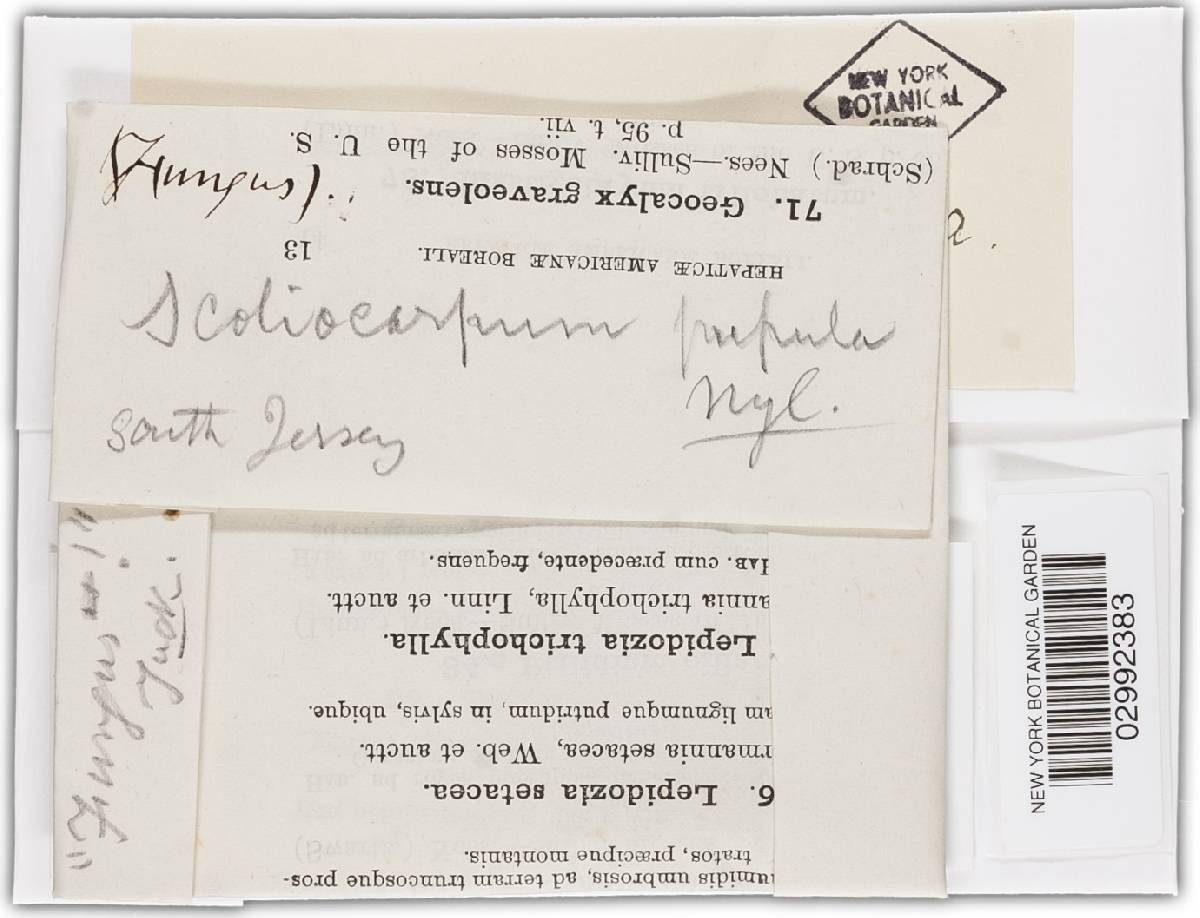 NEW YORK
BOTANICAL
GARDEN
(Schrad.) Nees.—Sulliv. Mosses of the U. S.
p. 95, t. vii.
71. Geocalyx graveolens.
HEPATICÆ AMERICANÆ BOREALI.
13
Fungus!
Scoliocarpum pupula
Nyl.
South Jersey
"Fungus!"
Tuck.
umidis umbrosis, ad terram truncosque pros-
tratos, præcipue montanis.
6. Lepidozia setacea.
rmannia setacea, Web. et auctt.
am lignumque putridum, in sylvis, ubique.
Lepidozia trichophylla.
annia trichophylla, Linn. et auctt.
HAB. cum præcedente, frequens.
NEW YORK BOTANICAL GARDEN
02992383